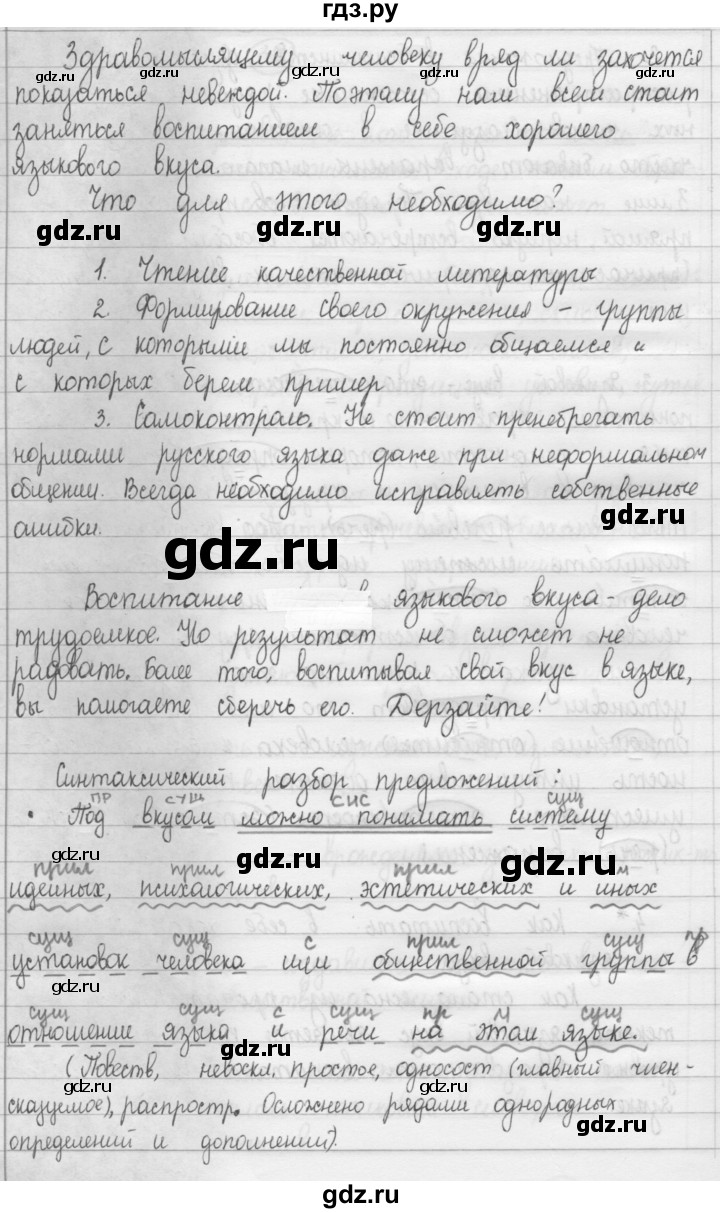 гдз.ру
Здравомыслящему человеку вряд ли захочется
показаться невеждой. Поэтому нам всем стоит
заняться воспитанием в себе хорошего
языкового вкуса.
Что для этого необходимо?
1. Чтение качественной литературы
2. Формирование своего окружения – группы
людей, с которыми мы постоянно общаемся и
с которых берем пример
3. Самоконтроль. Не стоит пренебрегать
нормами русского языка даже при неформальном
общении. Всегда необходимо исправлять собственные
ошибки.
Воспитание языкового вкуса – дело
трудоемкое. Но результат не сможет не
радовать. Более того, воспитывая свой вкус в языке,
вы помогаете сберечь его. Дерзайте!
Синтаксический разбор предложений:
пр сущ сис сущ
• Под вкусом можно понимать систему
прил прил прил м
идейных, психологических, эстетических и иных
сущ сущ с прил сущ пр
установок человека или общественной группы в
сущ сущ с сущ пр м сущ
отношение языка и речи на этом языке.
(Повеств, невоскл, простое, односост (главный член-
сказуемое), распростр. Осложнено рядами однородных
определений и дополнений).
gdz.ru gdz.ru gdz.ru
gdz.ru gdz.ru gdz.ru
gdz.ru gdz.ru gdz.ru
gdz.ru
gdz.ru
gdz.ru gdz.ru gdz.ru
gdz.ru gdz.ru
gdz.ru gdz.ru
gdz.ru
gdz.ru gdz.ru
gdz.ru